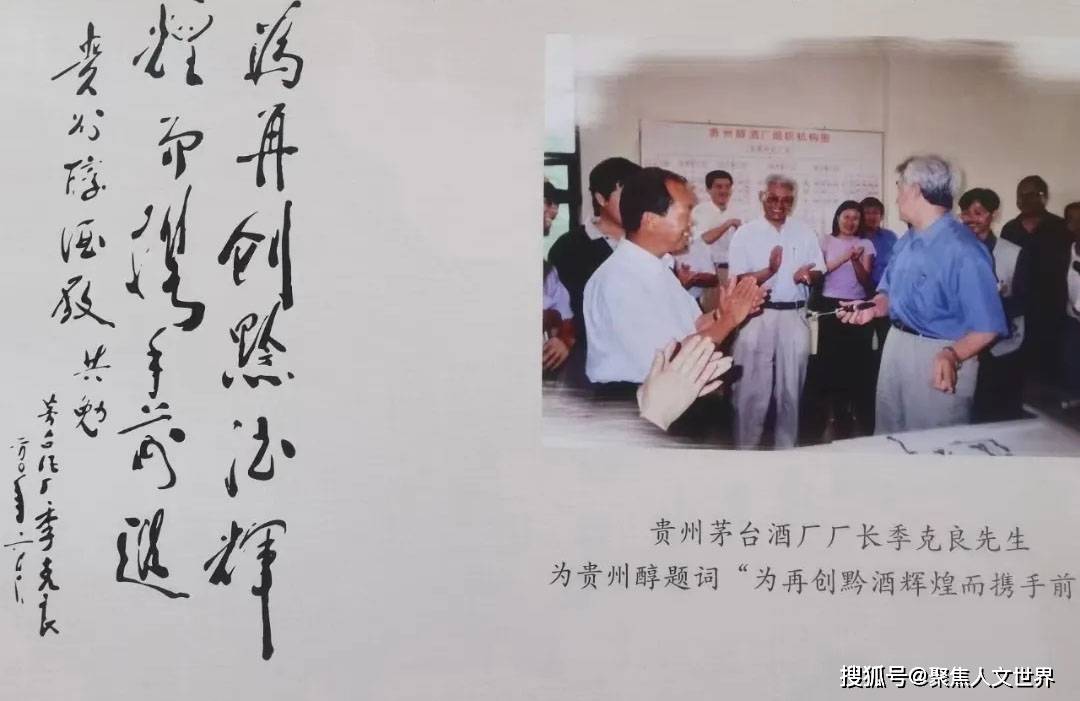 為再创黔酒辉
煌而携手前進
贵州醇酒共勉
茅台酒厂季克良
贵州醇酒厂组织机构图
贵州茅台酒厂厂长季克良先生
为贵州醇题词“为再创黔酒辉煌而携手前
搜狐号@聚焦人文世界